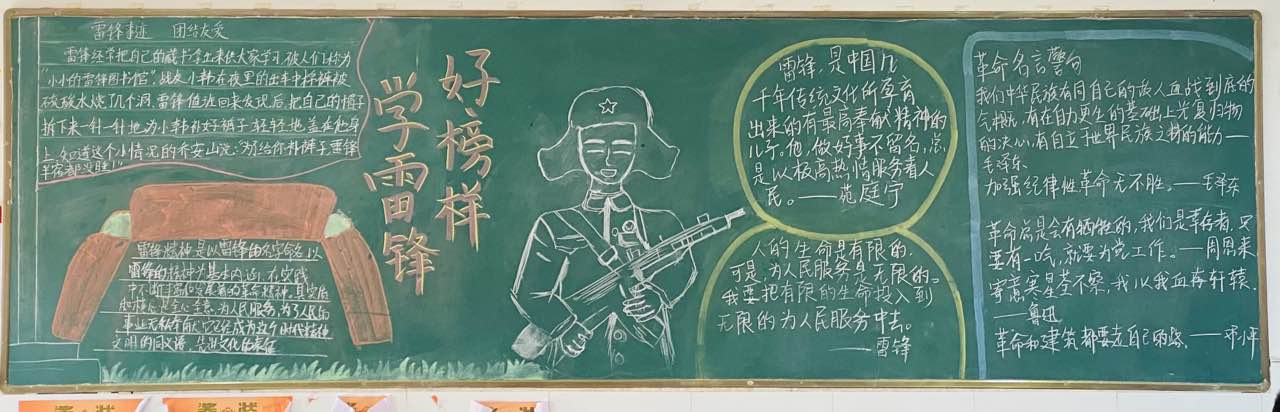 雷锋事迹 团结友爱
雷锋经常把自己的藏书拿出来供大家学习,被人们称为
“小小的雷锋图书馆”。战友小韩在夜里的出车中棉裤被
硫酸水烧了几个洞,雷锋值班回来发现后,把自己的帽子
拆下来一针一针地为小韩补好裤子,轻轻地盖在他身
上。知道这个小情况的乔安山说:“为了给你补裤子,雷锋
半宿都没睡!”
好榜样
学雷锋
雷锋精神是以雷锋的名字命名以
雷锋的精神为基本内涵,在实践
中不断丰富和发展着的革命精神。其实质
和核心是全心全意为人民服务,为了人民的
事业无私奉献,它已经成为这个时代精神
文明的同义语、先进文化的表征
雷锋,是中国几
千年传统文化所孕育
出来的有最高奉献精神的
儿子。他,做好事不留名,总
是以极高热情服务着人
民。——苑庭宁
人的生命是有限的,
可是,为人民服务是无限的。
我要把有限的生命投入到
无限的为人民服务中去。
——雷锋
革命名言警句
我们中华民族有同自己的敌人血战到底的
气概,有在自力更生的基础上光复旧物
的决心,有自立于世界民族之林的能力——
毛泽东
加强纪律性革命无不胜。——毛泽东
革命总是会有牺牲的,我们是幸存者,只
要有一口气,就要为党工作。——周恩来
寄意寒星荃不察,我以我血荐轩辕。
——鲁迅
革命和建筑都要走自己的路。——邓小平